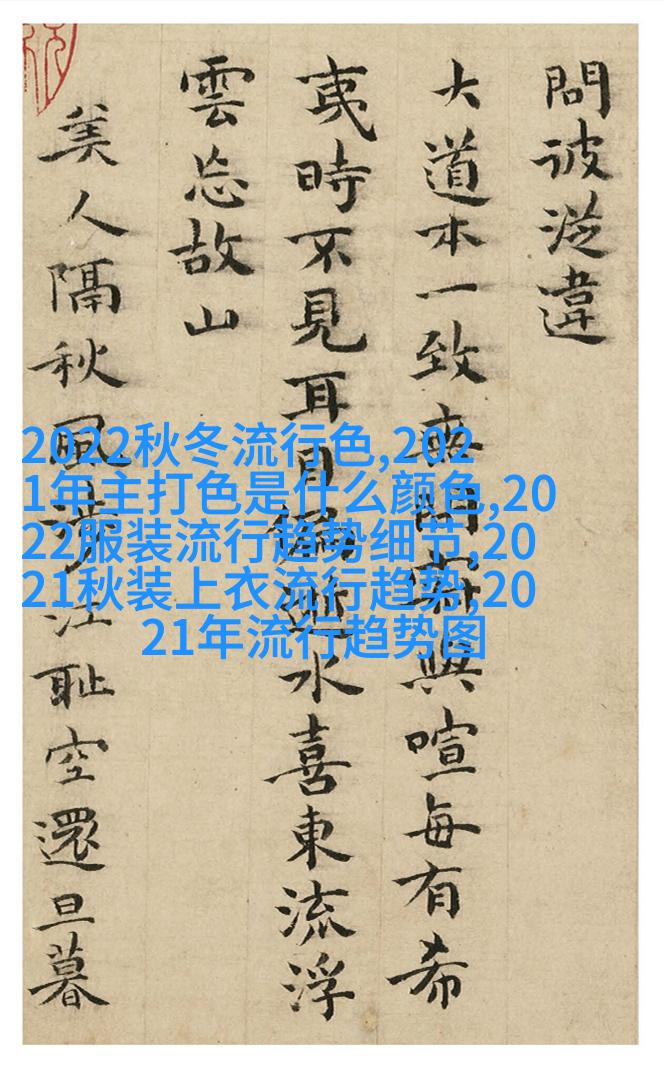 問彼從違
大道本一致與喧每有希
夷時不見耳目水喜東流浮
雲忘故山
美人隔秋風江耻空還旦暮
2022秋冬流行色,202
1年主打色是什么颜色,20
22服装流行趋势细节,20
21秋装上衣流行趋势,20
21年流行趋势图